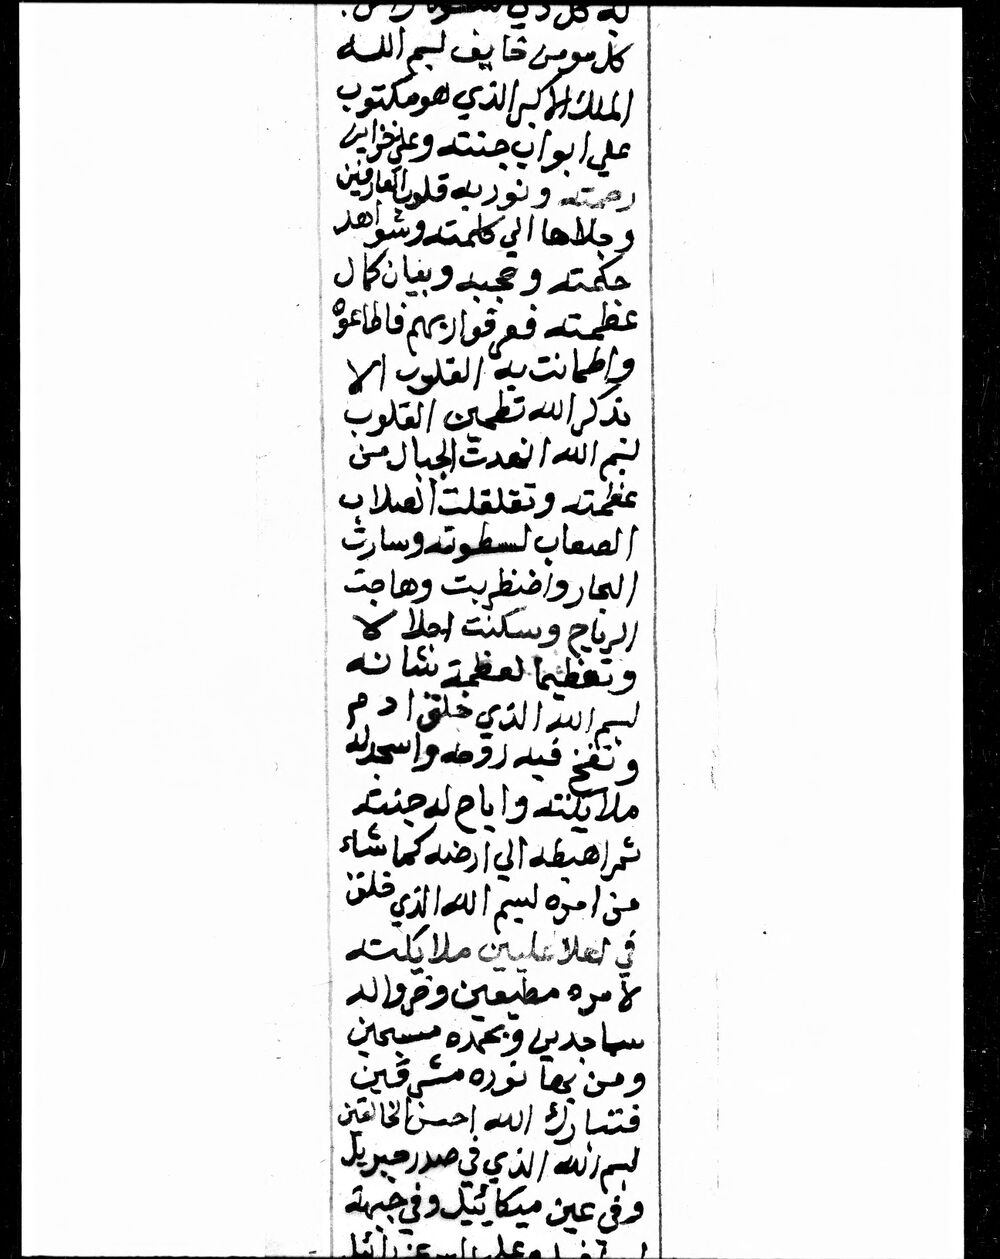 له كل ذي
كل مومن خايف لبسم الله
الملك الاكبر الذي هو مكتوب
علي ابواب جنته وعلي خزاين
رحمته ونور به قلوب العارفين
وجلاها الي كلمته وشواهد
حكمته وعجبه وبيان كمال
عظمته فعرفوا ربهم فاطاعوه
واطمانت به القلوب الا
بذكر الله تطمين القلوب
لبسم الله انهدت الجبال من
عظمته وتقلقلت الصلاب
الصعاب لسطوته وسارت
البحار واضطربت وهاجت
الرياح وسكنت اجلالا
وتعظيما لعظمة شانه
لبسم الله الذي خلق ادم
ونفخ فيه روحه واسجد له
ملايكته واباح له جنته
ثم اهبطه الي ارضه كما شاء
من امره لبسم الله الذي خلق
في اعلا عليين ملايكته
لامره مطيعين وخروا له
ساجدين وبحمده مسبحين
ومن بها نوره مشرقين
فتبارك الله احسن الخالقين
لبسم الله الذي في صدر جبريل
وفي عين ميكائيل وفي جبهة
وعلي عزرائيل